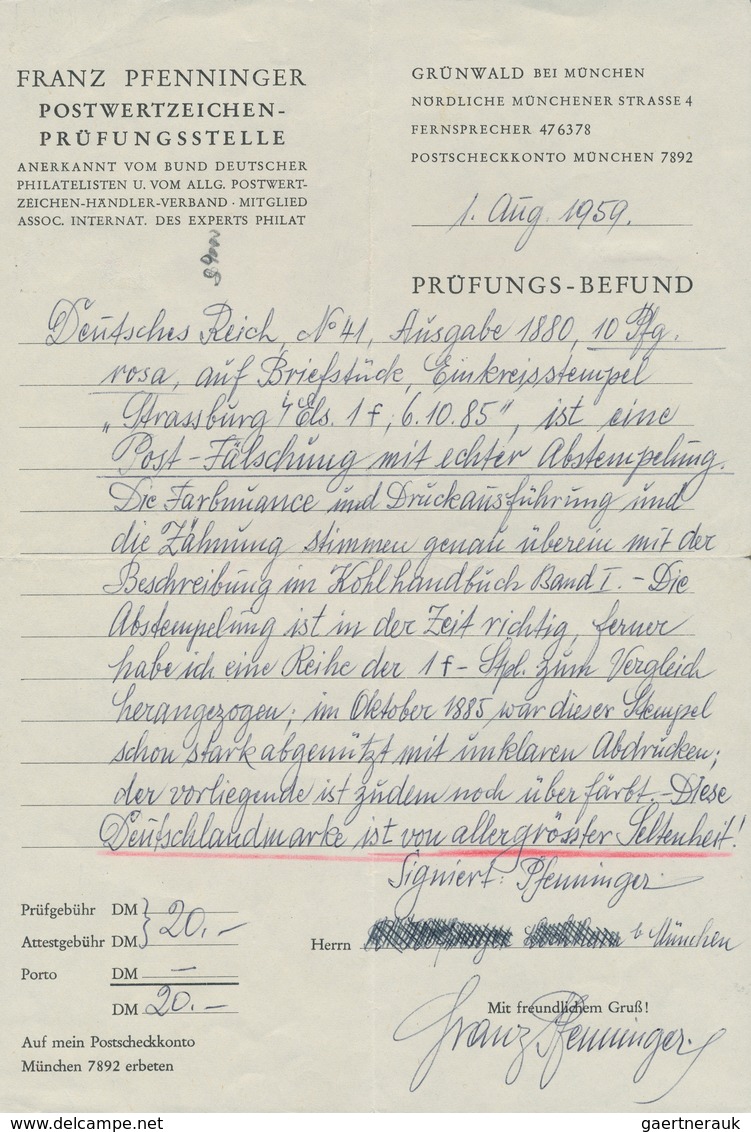 FRANZ PFENNINGER
POSTWERTZEICHEN-
PRÜFUNGSSTELLE
ANERKANNT VOM BUND DEUTSCHER
PHILATELISTEN U. VOM ALLG. POSTWERT-
ZEICHEN-HÄNDLER-VERBAND · MITGLIED
ASSOC. INTERNAT. DES EXPERTS PHILAT
GRÜNWALD BEI MÜNCHEN
NÖRDLICHE MÜNCHENER STRASSE 4
FERNSPRECHER 476378
POSTSCHECKKONTO MÜNCHEN 7892
1. Aug. 1959.
PRÜFUNGS-BEFUND
Deutsches Reich, No 41, Ausgabe 1880, 10 Pfg.
rosa, auf Briefstück, Einkreisstempel
„Strassburg i/Els. 1 f, 6.10.85", ist eine
Post-Fälschung mit echter Abstempelung.
Die Farbnuance und Druckausführung und
die Zähnung stimmen genau überein mit der
Beschreibung im Kohlhandbuch Band I. - Die
Abstempelung ist in der Zeit richtig, ferner
habe ich eine Reihe der 1 f - Stpl. zum Vergleich
herangezogen; im Oktober 1885 war dieser Stempel
schon stark abgenützt mit unklaren Abdrücken;
der vorliegende ist zudem noch überfärbt. - Diese
Deutschlandmarke ist von allergrösster Seltenheit!
Signiert: Pfenninger.
Prüfgebühr DM } 20.-
Attestgebühr DM
Porto DM —
DM 20.-
Auf mein Postscheckkonto
München 7892 erbeten
Herrn b. München
Mit freundlichem Gruß!
Franz Pfenninger.
gaertnerauk